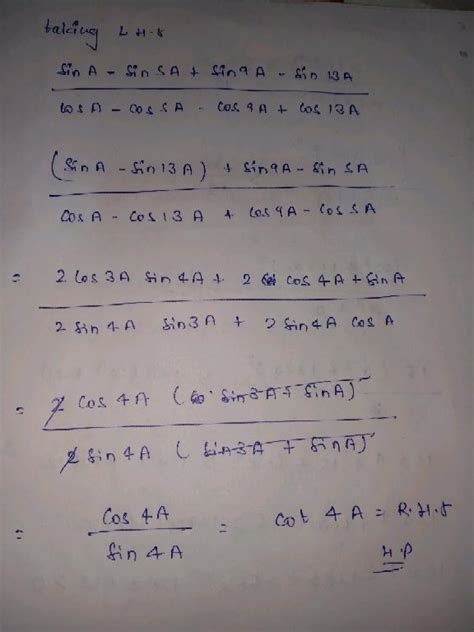 taking L H.S
Sin A - Sin 5A + Sin 9A - Sin 13A
Cos A - Cos 5A - Cos 9A + Cos 13A
(Sin A - Sin 13A) + Sin 9A - Sin 5A
Cos A - Cos 13 A + Cos 9A - Cos 5A
= 2 Cos 3A Sin 4A + 2 Cos 4A + Sin A
2 Sin 4A Sin 3A + 2 Sin 4A Cos A
= 2 Cos 4A ( Sin 3A + Sin A)
2 Sin 4A ( Sin 3A + Sin A)
= Cos 4A = Cot 4A = R.H.S
Sin 4A
H.P